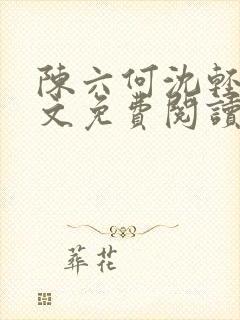 陳六何沈輕
文免費閱讀
葬花